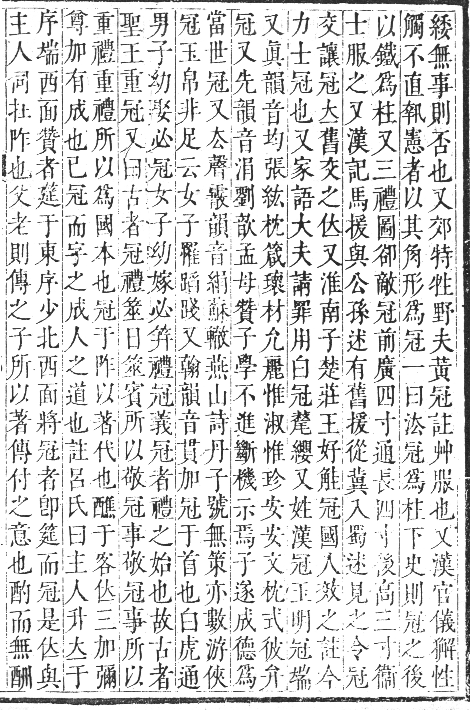 緌無事則否也又郊特牲野夫黃冠註艸服也又漢官儀獬性
觸不直執憲者以其角形爲冠一曰法冠爲杜下史則冠之後
以鐵爲柱又三禮圖卻敵冠前廣四寸通長四寸後高三寸衞
士服之又漢記馬援與公孫述有舊援從冀入蜀述見之令冠
交讓冠大舊交之位又淮南子楚莊王好觟冠國人效之註今
力士冠也又家語大夫請罪用白冠氂纓又姓漢冠玉明冠端
又眞韻音均張紘枕箴瓌材允麗惟淑惟珍安安文枕式彼弁
冠又先韻音涓劉歆孟母贊子學不進斷機示焉子遂成德爲
當世冠又厺聲霰韻音絹蘇轍燕山詩丹子號無策亦數游俠
冠玉帛非足云女子罹蹈踐又翰韻音貫加冠于首也白虎通
男子幼娶必冠女子幼嫁必筓禮冠義冠者禮之始也故古者
聖王重冠又曰古者冠禮筮日筮賓所以敬冠事敬冠事所以
重禮重禮所以爲國本也冠于阼以著代也醮于客位三加彌
尊加有成也已冠而字之成人之道也註呂氏曰主人升大于
序端西面贊者筵于東序少北西面將冠者卽筵而冠是位與
主人同在阼也父老則傳之子所以著傳付之意也酌而無酬